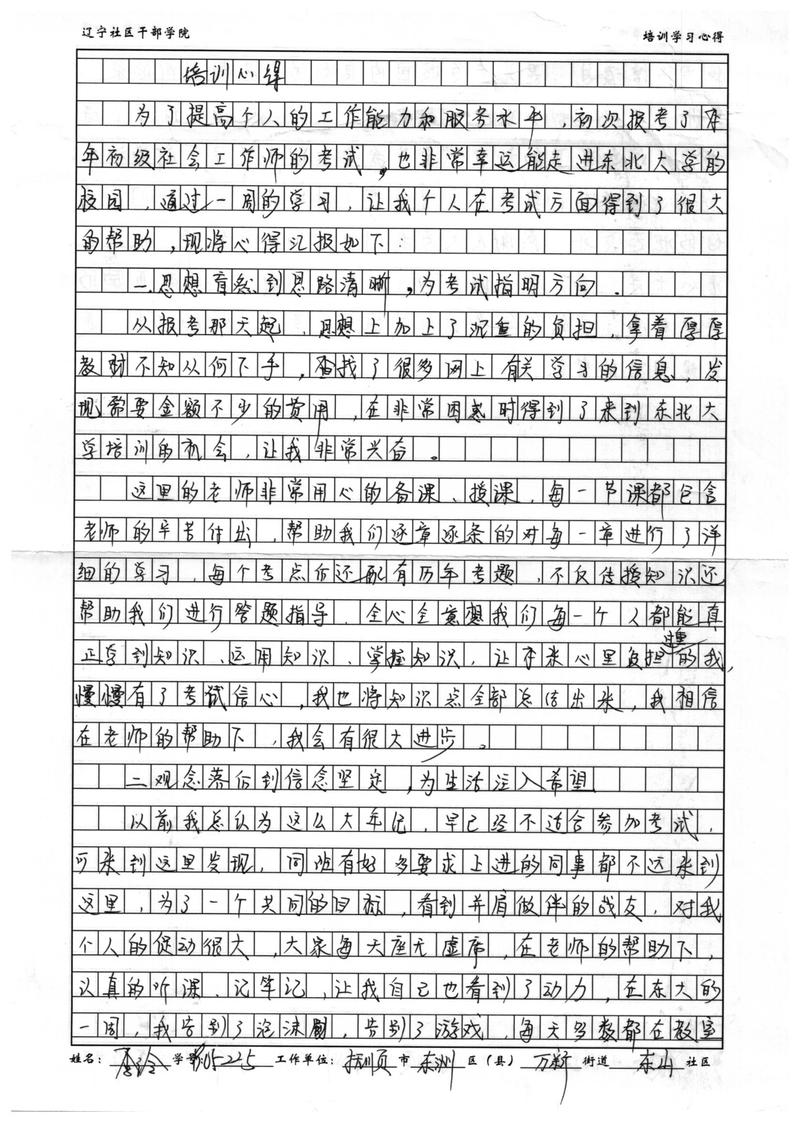 辽宁社区干部学院 培训学习心得
培训心得
为了提高个人的工作能力和服务水平,初次报考了本
年初级社会工作师的考试,也非常幸运能走进东北大学的
校园,通过一周的学习,让我个人在考试方面得到了很大
的帮助,现将心得汇报如下:
一.思想盲然到思路清晰,为考试指明方向。
从报考那天起,思想上加上了沉重的负担,拿着厚厚
教材不知从何下手,查找了很多网上有关学习的信息,发
现需要金额不少的费用,在非常困惑时得到了来到东北大
学培训的机会,让我非常兴奋。
这里的老师非常用心的备课、授课,每一节课都包含
老师的辛苦付出,帮助我们逐章逐条的对每一章进行了详
细的学习,每个考点后还配有历年考题,不仅传授知识还
帮助我们进行答题指导,全心全意想我们每一个人都能真
正学到知识、运用知识、掌握知识,让本来心里负担过重的我,
慢慢有了考试信心,我也将知识点全部总结出来,我相信
在老师的帮助下,我会有很大进步。
二观念落后到信念坚定,为生活注入希望
以前我总认为这么大年记,早已经不适合参加考试,
可来到这里发现,同班有好多要求上进的同事都不远来到
这里,为了一个共同的目标,看到并肩做伴的战友,对我
个人的促动很大,大家每天座无虚席,在老师的帮助下,
认真的听课、记笔记,让我自己也看到了动力,在东大的
一周,我告别了泡沫剧,告别了游戏,每天多数都在教室
姓名: 学号: 05225 工作单位: 抚顺 市 东洲 区(县) 万新 街道 东山 社区